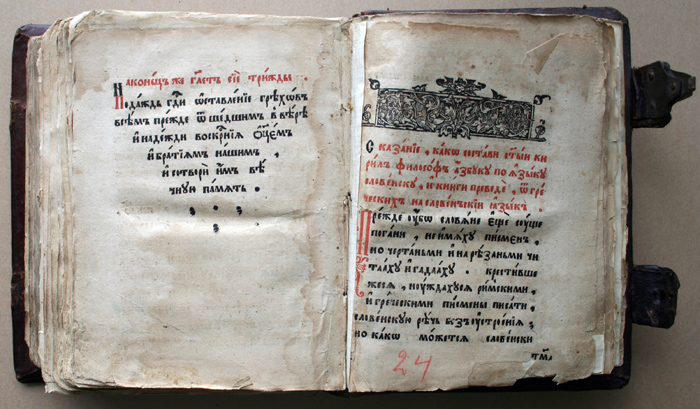 Наконецъ же гл҃етъ сїѐ трижды .
Подаждь гдⷭ҇и ѡ҆ставленїе грѣхѡвъ
всѣмъ прежде ѿшедшимъ в вѣрѣ
и҆ надежди воскрⷭ҇нїѧ ѻ҆ц҃емъ
и҆ братїѧмъ нашимъ ,
и҆ сотвори и҆̀мъ вѣ
чную память .
Сказанїе , какѡ состави ст҃ыи ки
рилъ философъ а҆збуку по ꙗ҆зыку
словенску , и҆ книги преведе , ѿ гре
ческихъ на словеньскїи ꙗ҆зыкъ .
Прежде ѹ҆бо словѧне е҆ще суще
погани , не и҆мѧху писменъ ,
но чертаньми и҆ нарѣзаньми чи
таѧху и҆ гадаху . крестивше
жесѧ , ноуждахусѧ римскими ,
и҆ греческими писмены писати ,
словенскую рѣчь безъ ѹ҆строенїѧ ,
но какѡ можетсѧ словенски
24